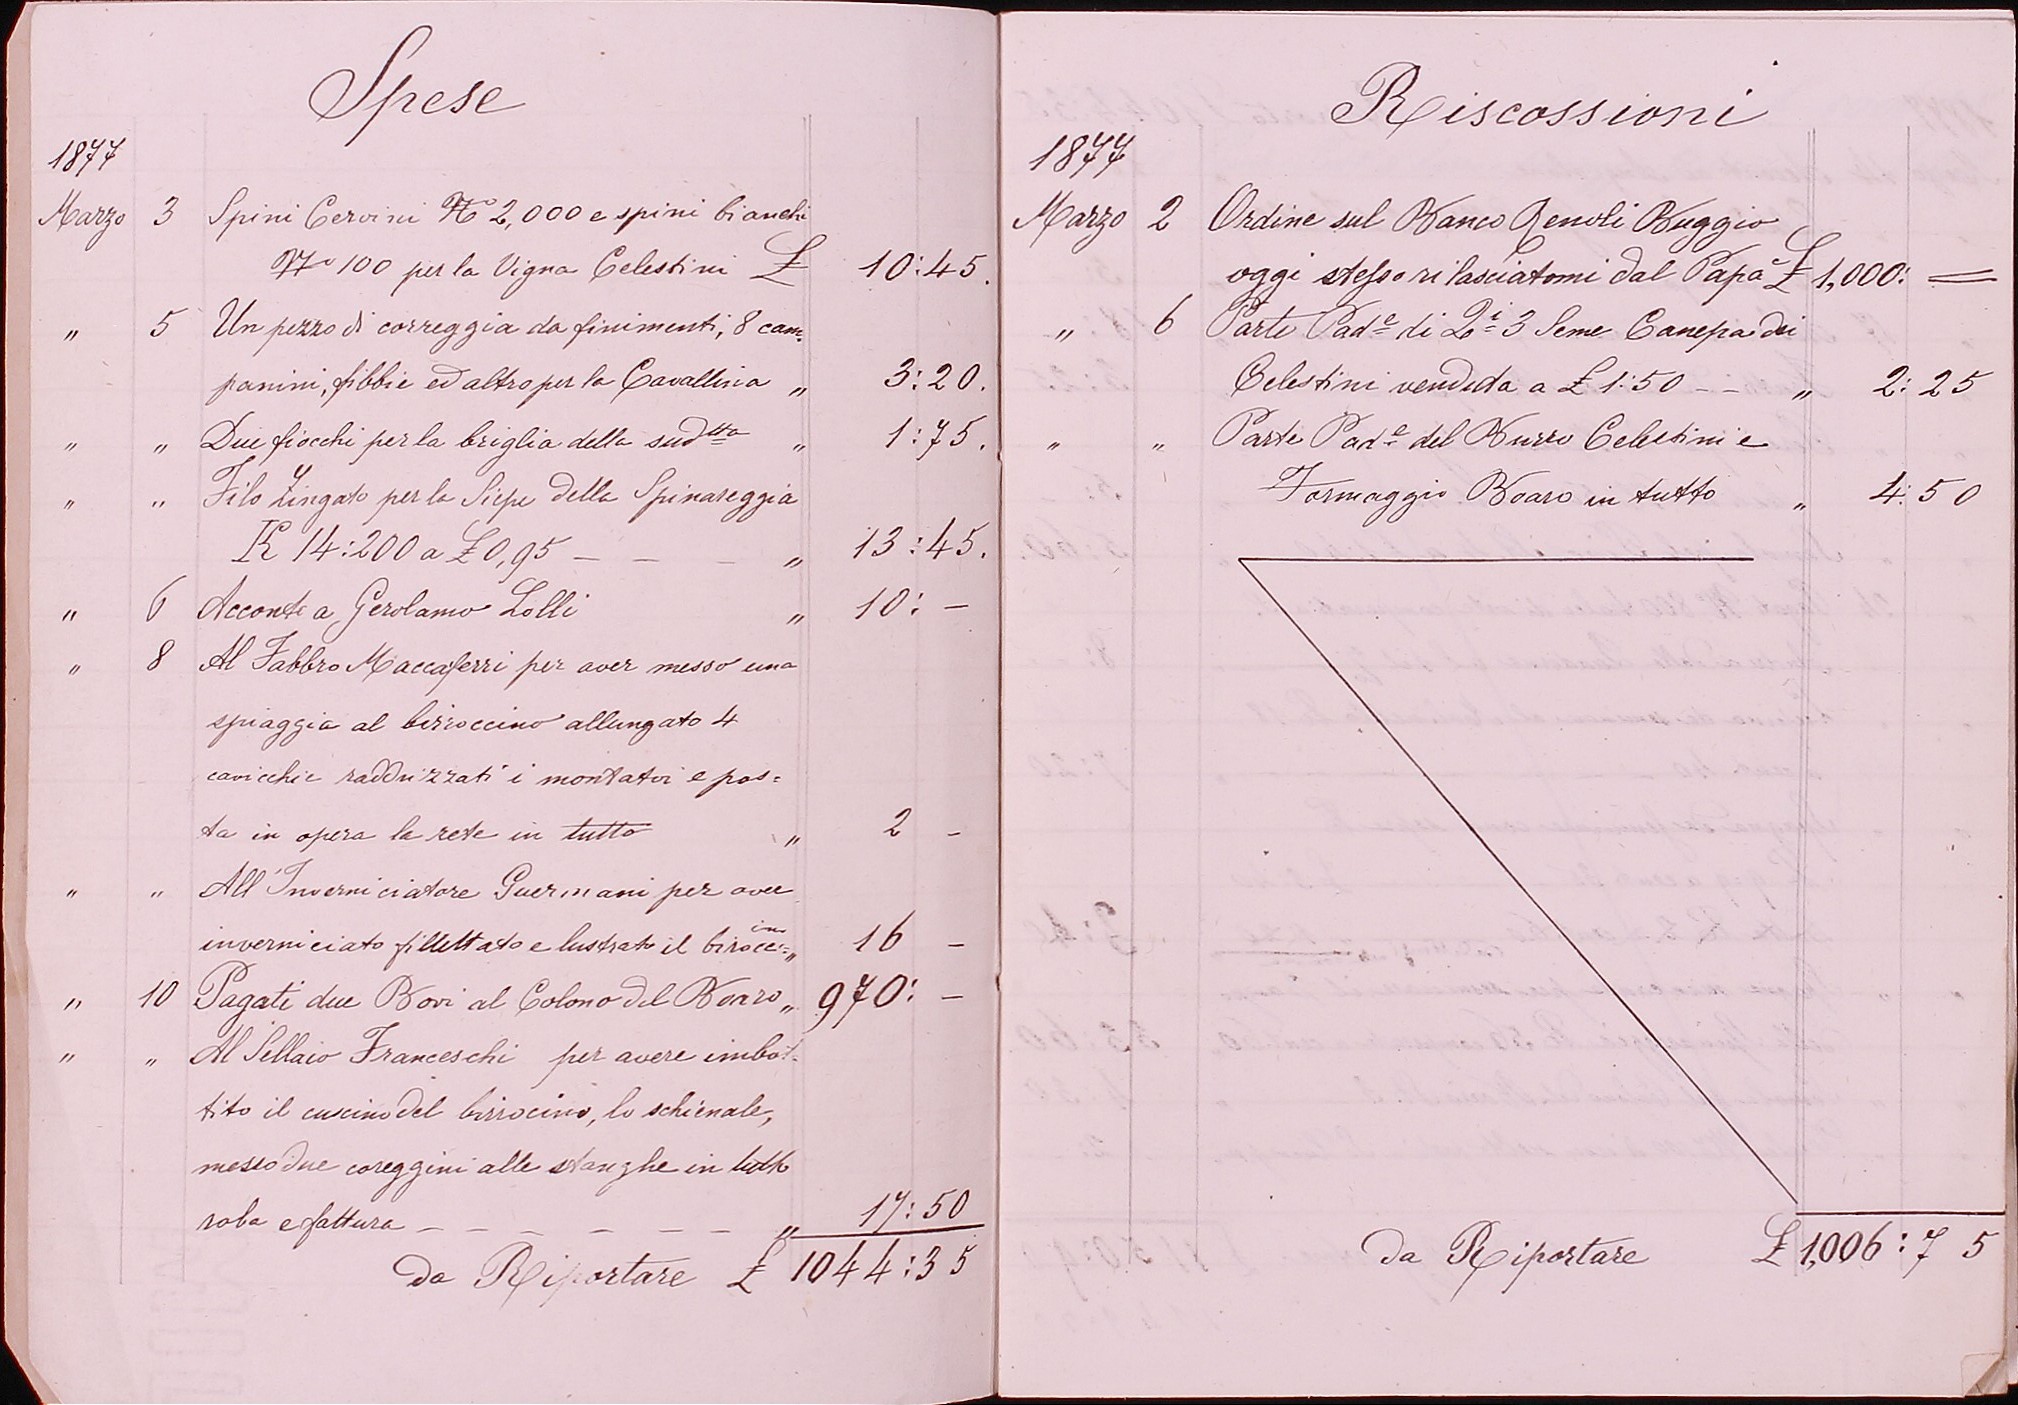 Spese
1877
Marzo 3 Spini Cervini No 2,000 e spini bianchi
No 100 per la Vigna Celestini £ 10:45.
" 5 Un pezzo di correggia da finimenti, 8 cam-
panini, fibbie ed altro per la Cavallina " 3:20.
" " Due fiocchi per la briglia della sudtta " 1:75.
" " Filo Zingato per la Siepe della Spinareggia
K 14:200 a £ 0,95 - - - " 13:45.
" 6 Acconto a Gerolamo Lolli " 10: -
" 8 Al Fabbro Maccaferri per aver messo una
spiaggia al birroccino allungato 4
cavicchie raddrizzati i montatoi e pos=
ta in opera la rete in tutto " 2 -
" " All'Inverniciatore Guermani per aver
inverniciato filettato e lustrato il biroccino " 16 -
" 10 Pagati due Bovi al Colono del Boaro " 970: -
" " Al Sellaio Franceschi per avere imbot-
tito il cuscino del birrocino, lo schienale,
messo due coreggini alle stanghe in tutto
roba e fattura - - - - - - " 17:50
da Riportare £ 1044:35
Riscossioni
1877
Marzo 2 Ordine sul Banco Renoli Buggio
oggi stesso rilasciatomi dal Papà £ 1,000: =
" 6 Parte Pade di Li 3 Seme Canepa dei
Celestini venduta a £ 1:50 - - " 2:25
" " Parte Pade del Burro Celestini e
Formaggio Boaro in tutto " 4:50
da Riportare £ 1,006:75